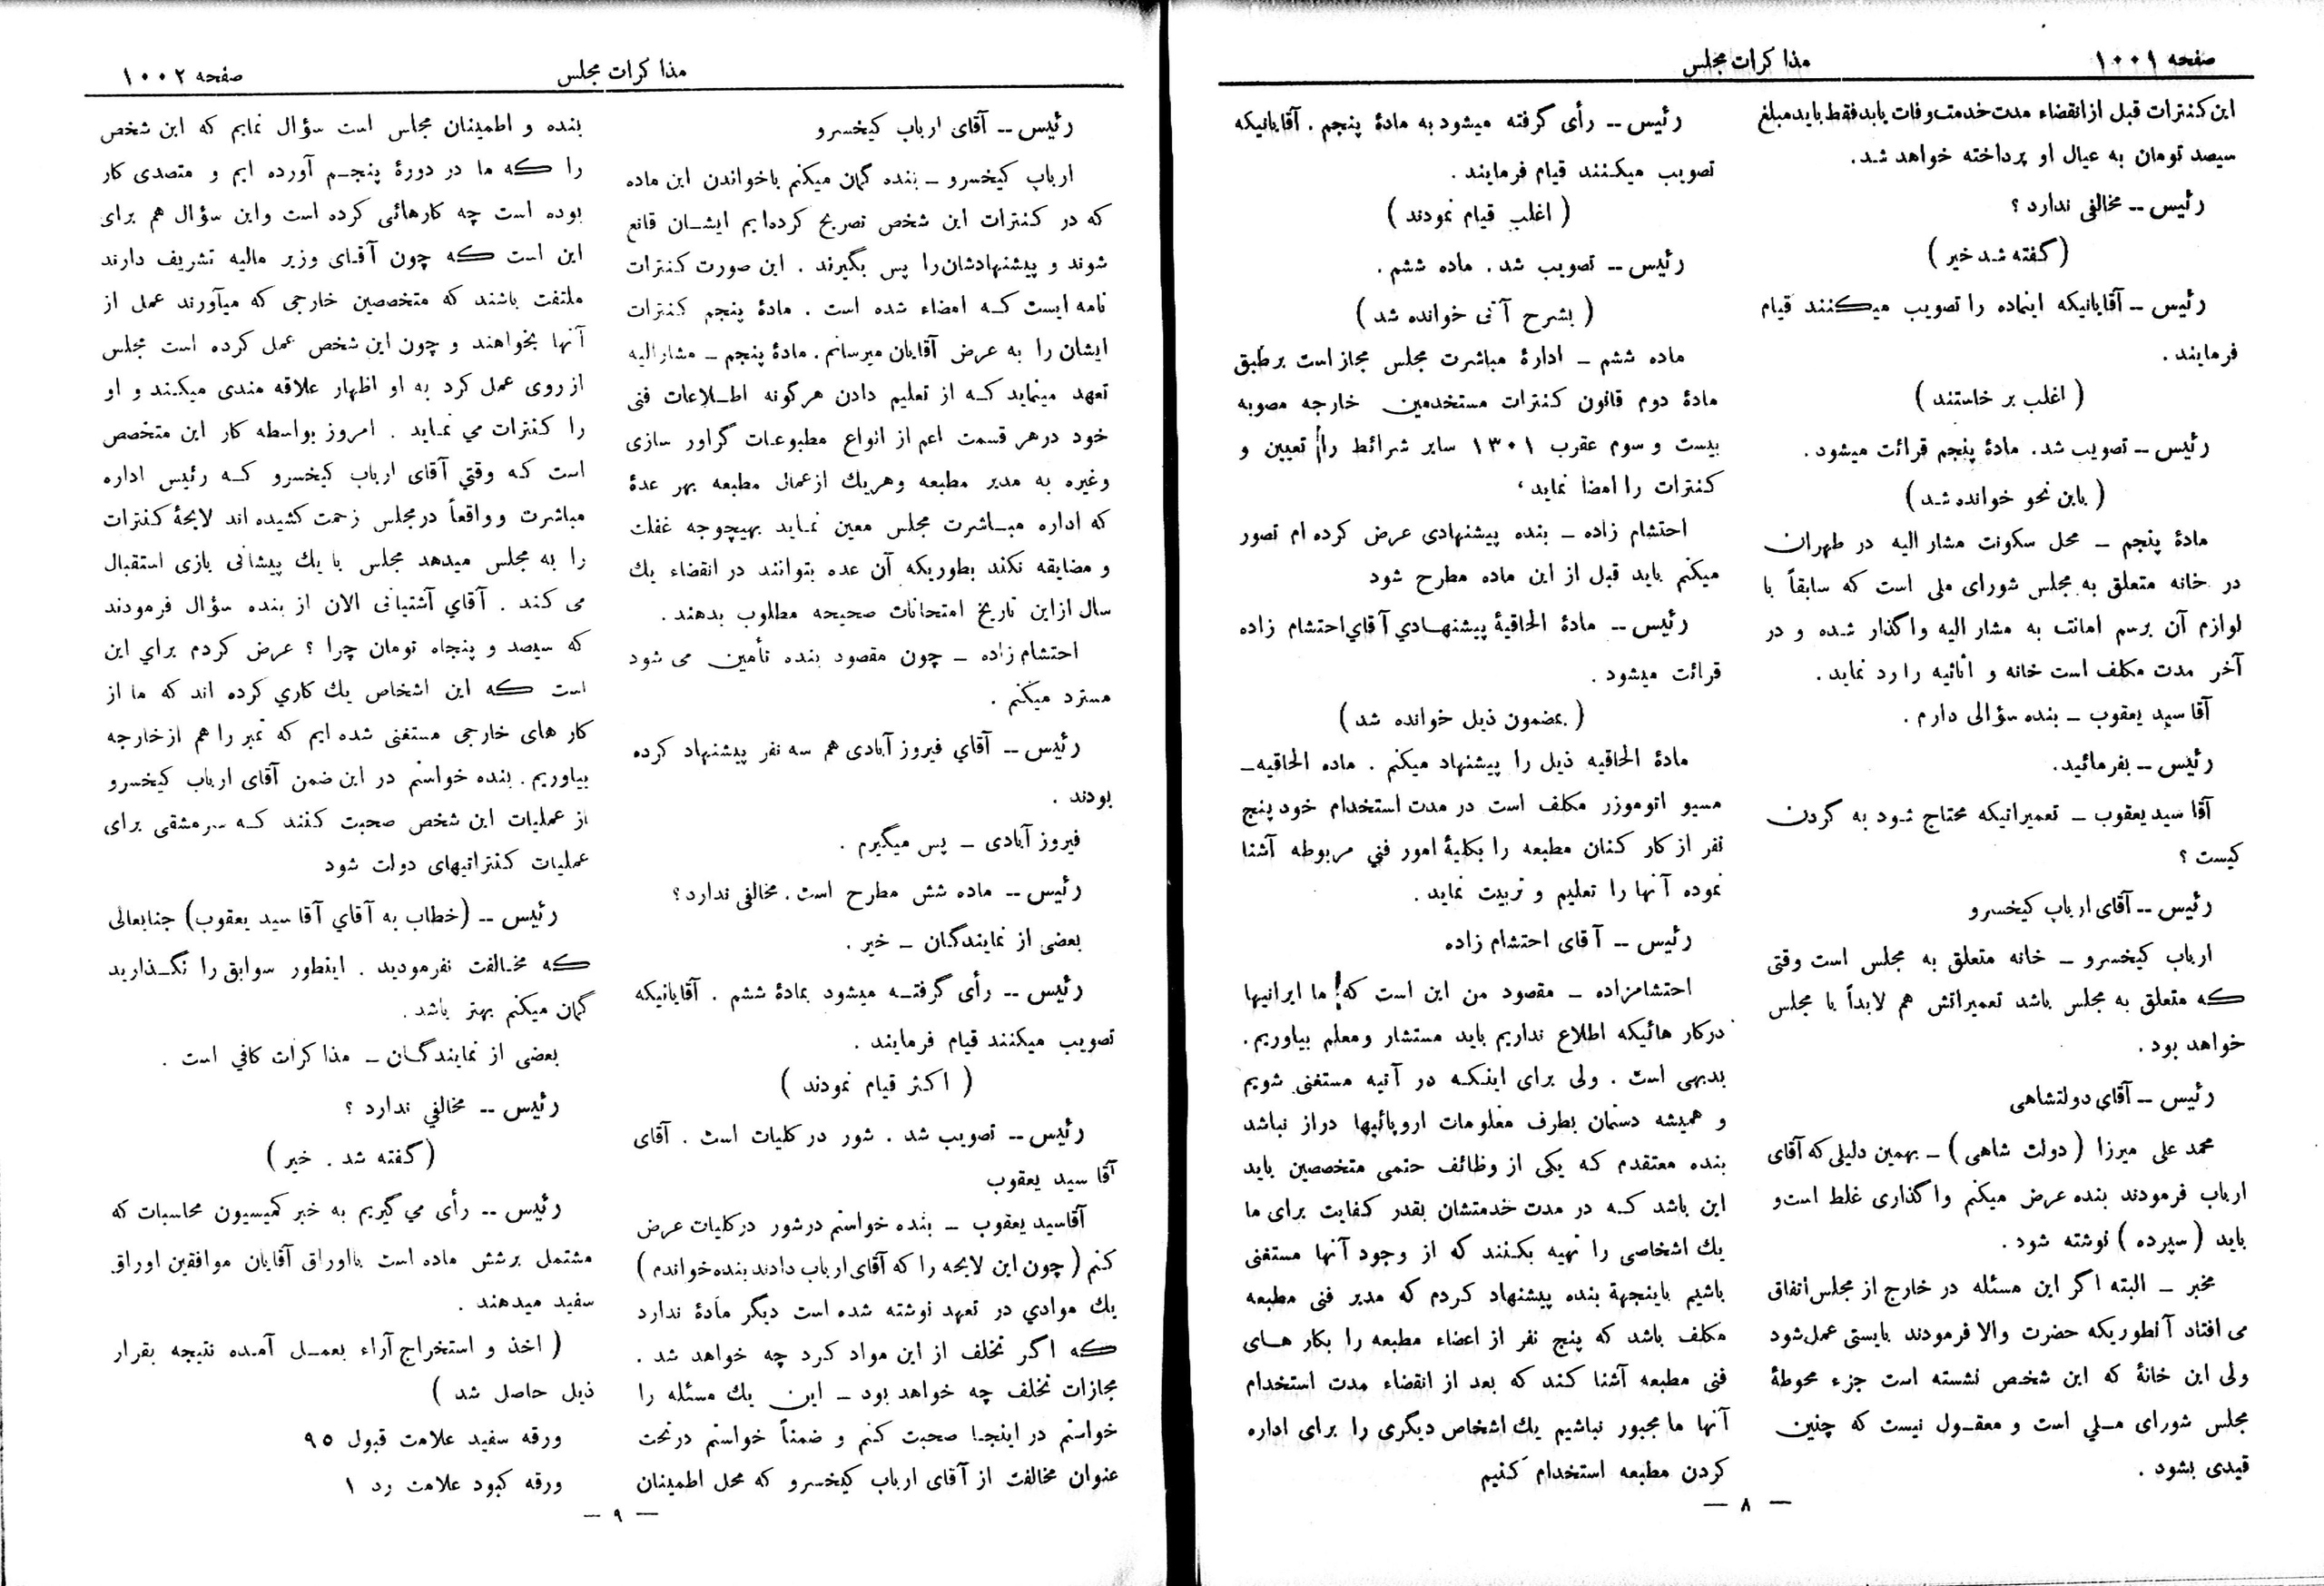 صفحه ۱۰۰۱
مذاکرات مجلس
این کنترات قبل از انقضاء مدت خدمت وفات یابد فقط باید مبلغ
سیصد تومان به عیال او پرداخته خواهد شد.
رئیس ــ مخالفی ندارد ؟
( گفته شد خیر )
رئیس ــ آقایانیکه اینماده را تصویب میکنند قیام
فرمایند .
( اغلب بر خاستند )
رئیس ــ تصویب شد. مادهٔ پنجم قرائت میشود .
( باین نحو خوانده شد )
مادهٔ پنجم ــ محل سکونت مشار الیه در طهران
در خانه متعلق به مجلس شورای ملی است که سابقاً با
لوازم آن برسم امانت به مشار الیه واگذار شده و در
آخر مدت مکلف است خانه و اثاثیه را رد نماید .
آقا سید یعقوب ــ بنده سؤالی دارم .
رئیس ــ بفرمائید.
آقا سید یعقوب ــ تعمیراتیکه محتاج شود به گردن
کیست ؟
رئیس ــ آقای ارباب کیخسرو
ارباب کیخسرو ــ خانه متعلق به مجلس است وقتی
که متعلق به مجلس باشد تعمیراتش هم لابداً با مجلس
خواهد بود .
رئیس ــ آقای دولتشاهی
محمد علی میرزا ( دولت شاهی ) ــ بهمین دلیلی که آقای
ارباب فرمودند بنده عرض میکنم واگذاری غلط است و
باید ( سپرده ) نوشته شود .
مخبر ــ البته اگر این مسئله در خارج از مجلس اتفاق
می افتاد آنطوریکه حضرت والا فرمودند بایستی عمل شود
ولی این خانهٔ که این شخص نشسته است جزء محوطهٔ
مجلس شورای ملی است و معقول نیست که چنین
قیدی بشود .
رئیس ــ رأی گرفته میشود به مادهٔ پنجم . آقایانیکه
تصویب میکنند قیام فرمایند .
( اغلب قیام نمودند )
رئیس ــ تصویب شد. ماده ششم .
( بشرح آتی خوانده شد )
ماده ششم ــ ادارهٔ مباشرت مجلس مجاز است برطبق
مادهٔ دوم قانون کنترات مستخدمین خارجه مصوبه
بیست و سوم عقرب ۱۳۰۱ سایر شرائط را تعیین و
کنترات را امضا نماید ،
احتشام زاده ــ بنده پیشنهادی عرض کرده ام تصور
میکنم باید قبل از این ماده مطرح شود
رئیس ــ مادهٔ الحاقیهٔ پیشنهادي آقاي احتشام زاده
قرائت میشود .
( بمضمون ذیل خوانده شد )
مادهٔ الحاقیه ذیل را پیشنهاد میکنم . ماده الحاقیه ــ
مسیو اتوموزر مکلف است در مدت استخدام خود پنج
نفر از کار کنان مطبعه را بکلیهٔ امور فني مربوطه آشنا
نموده آنها را تعلیم و تربیت نماید .
رئیس ــ آقای احتشام زاده
احتشامزاده ــ مقصود من این است که ما ایرانیها
درکار هائیکه اطلاع نداریم باید مستشار ومعلم بیاوریم.
بدیهی است . ولی برای اینکه در آتیه مستغنی شویم
و همیشه دستمان بطرف معلومات اروپائیها دراز نباشد
بنده معتقدم که یکی از وظائف حتمی متخصصین باید
این باشد که در مدت خدمتشان بقدر کفایت برای ما
یك اشخاصی را تهیه بکنند که از وجود آنها مستغنی
باشیم باینجهة بنده پیشنهاد کردم که مدیر فنی مطبعه
مکلف باشد که پنج نفر از اعضاء مطبعه را بکار های
فنی مطبعه آشنا کند که بعد از انقضاء مدت استخدام
آنها ما مجبور نباشیم یك اشخاص دیگری را برای اداره
کردن مطبعه استخدام کنیم
— ۸ —
مذاکرات مجلس
صفحه ۱۰۰۲
رئیس ــ آقای ارباب کیخسرو
ارباب کیخسرو ــ بنده گمان میکنم باخواندن این ماده
که در کنترات این شخص تصریح کرده‌ایم ایشان قانع
شوند و پیشنهادشان را پس بگیرند . این صورت کنترات
نامه ایست که امضاء شده است . مادهٔ پنجم کنترات
ایشان را به عرض آقایان میرسانم . مادهٔ پنجم ــ مشارالیه
تعهد مینماید که از تعلیم دادن هرگونه اطلاعات فنی
خود درهر قسمت اعم از انواع مطبوعات گراور سازی
وغیره به مدیر مطبعه وهریك از عمال مطبعه بهر عدهٔ
که اداره مباشرت مجلس معین نماید بهیچوجه غفلت
و مضایقه نکند بطوریکه آن عده بتوانند در انقضاء یك
سال ازاین تاریخ امتحانات صحیحه مطلوب بدهند .
احتشام زاده ــ چون مقصود بنده تأمین می شود
مسترد میکنم .
رئیس ــ آقاي فیروز آبادی هم سه نفر پیشنهاد کرده
بودند .
فیروز آبادی ــ پس میگیرم .
رئیس ــ ماده شش مطرح است. مخالفی ندارد ؟
بعضی از نمایندگان ــ خیر .
رئیس ــ رأی گرفته میشود بمادهٔ ششم . آقایانیکه
تصویب میکنند قیام فرمایند .
( اکثر قیام نمودند )
رئیس ــ تصویب شد . شور در کلیات است . آقای
آقا سید یعقوب
آقاسید یعقوب ــ بنده خواستم درشور درکلیات عرض
کنم ( چون این لایحه را که آقای ارباب دادند بنده خواندم )
یك موادي در تعهد نوشته شده است دیگر مادهٔ ندارد
که اگر تخلف از این مواد کرد چه خواهد شد .
مجازات تخلف چه خواهد بود ــ این یك مسئله را
خواستم در اینجا صحبت کنم و ضمناً خواستم درتحت
عنوان مخالفت از آقای ارباب کیخسرو که محل اطمینان
بنده و اطمینان مجلس است سؤال نمایم که این شخص
را که ما در دورهٔ پنجم آورده ایم و متصدی کار
بوده است چه کارهائی کرده است واین سؤال هم برای
این است که چون آقای وزیر مالیه تشریف دارند
ملتفت باشند که متخصصین خارجی که میآورند عمل از
آنها بخواهند و چون این شخص عمل کرده است مجلس
از روی عمل کرد به او اظهار علاقه مندی میکند و او
را کنترات مي نماید . امروز بواسطه کار این متخصص
است که وقتي آقای ارباب کیخسرو که رئیس اداره
مباشرت و واقعاً درمجلس زحمت کشیده اند لایحهٔ کنترات
را به مجلس میدهد مجلس با یك پیشانی بازی استقبال
می کند . آقاي آشتیانی الان از بنده سؤال فرمودند
که سیصد و پنجاه تومان چرا ؟ عرض کردم براي این
است که این اشخاص یك کاري کرده اند که ما از
کار های خارجی مستغنی شده ایم که تمبر را هم از خارجه
بیاوریم . بنده خواستم در این ضمن آقای ارباب کیخسرو
از عملیات این شخص صحبت کنند که سرمشقی برای
عملیات کنتراتیهای دولت شود
رئیس ــ (خطاب به آقاي آقا سید یعقوب) جنابعالی
که مخالفت نفرمودید . اینطور سوابق را نگذارید
گمان میکنم بهتر باشد .
بعضی از نمایندگان ــ مذاکرات کافي است .
رئیس ــ مخالفي ندارد ؟
( گفته شد . خیر )
رئیس ــ رأی می گیریم به خبر کمیسیون محاسبات که
مشتمل برشش ماده است بااوراق آقایان موافقین اوراق
سفید میدهند .
( اخذ و استخراج آراء بعمل آمده نتیجه بقرار
ذیل حاصل شد )
ورقه سفید علامت قبول ۹۵
ورقه کبود علامت رد ۱
— ۹ —